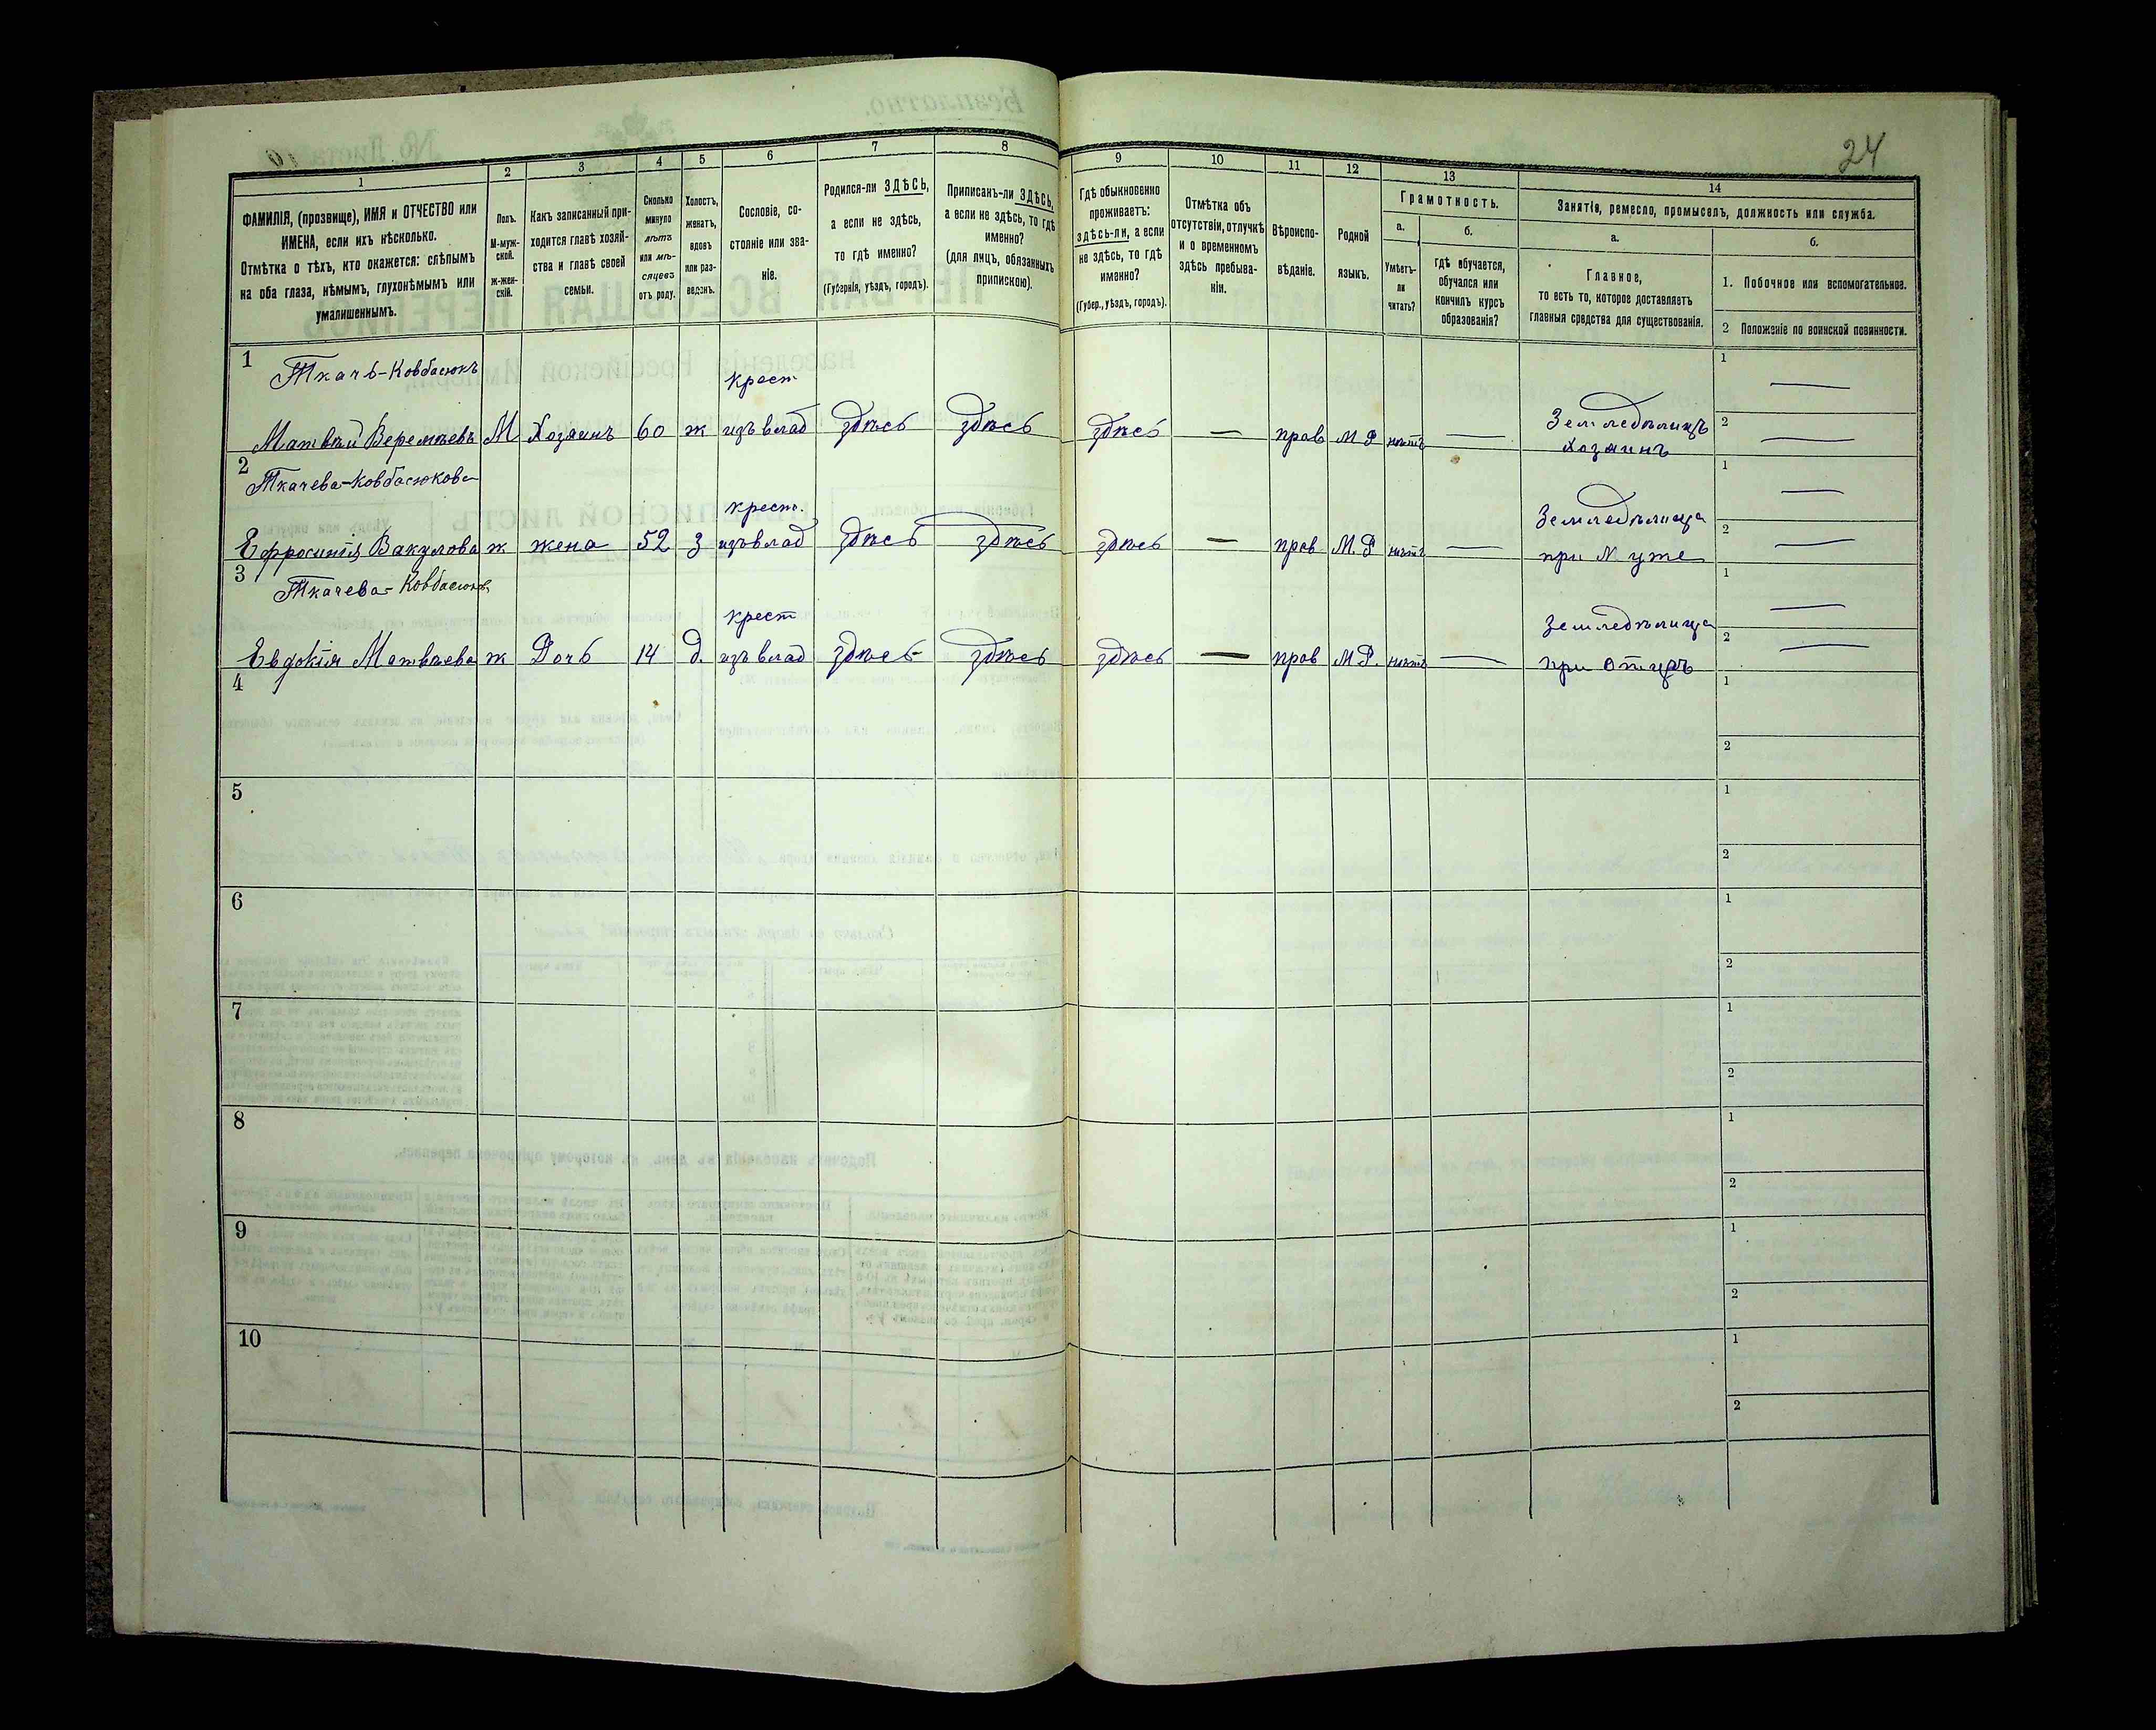 24
1
2
3
4
5
6
7
8
9
10
11
12
13
14
ФАМИЛІЯ, (прозвище), ИМЯ и ОТЧЕСТВО или
ИМЕНА, если ихъ нѣсколько.
Отмѣтка о тѣхъ, кто окажется: слѣпымъ
на оба глаза, нѣмымъ, глухонѣмымъ или
умалишеннымъ.
Полъ.
М-муж-
ской.
ж-жен-
скій.
Какъ записанный при-
ходится главѣ хозяй-
ства и главѣ своей
семьи.
Сколько
минуло
лѣтъ
или мѣ-
сяцевъ
отъ роду.
Холостъ,
женатъ,
вдовъ
или раз-
веденъ.
Сословіе, со-
стояніе или зва-
ніе.
Родился-ли ЗДѢСЬ,
а если не здѣсь,
то гдѣ именно?
(Губернія, уѣздъ, городъ).
Приписанъ-ли ЗДѢСЬ,
а если не здѣсь, то гдѣ
именно?
(для лицъ, обязанныхъ
припискою).
Гдѣ обыкновенно
проживаетъ:
здѣсь-ли, а если
не здѣсь, то гдѣ
именно?
(Губер., уѣздъ, городъ).
Отмѣтка объ
отсутствіи, отлучкѣ
и о временномъ
здѣсь пребыва-
ніи.
Вѣроиспо-
вѣданіе.
Родной
языкъ.
Грамотность.
а.
Умѣетъ-
ли
читать?
б.
гдѣ обучается,
обучался или
кончилъ курсъ
образованія?
Занятія, ремесло, промыселъ, должность или служба.
а.
Главное,
то есть то, которое доставляетъ
главныя средства для существованія.
б.
1. Побочное или вспомогательное.
2 Положеніе по воинской повинности.
1
Ткачь-Ковбасюкъ
крест
1 —
Матвѣй Веремѣевъ М Хозяинъ 60 ж изъ влад здѣсь здѣсь здѣсь — прав М Р нѣтъ — Земледѣлицъ
Хозяинъ
2 —
2
Ткачева-Ковбасюкова
крест.
1 —
Ефросинія Вакулова ж жена 52 з изъ влад здѣсь здѣсь здѣсь — прав М.Р нѣтъ — Земледѣлица
при Муже
2 —
3
Ткачева-Ковбасюк
крест
1 —
Евдокія Матвѣева ж Дочь 14 д. изъ влад здѣсь здѣсь здѣсь — прав М.Р. нѣтъ — Земледѣлица
при Отцѣ
2 —
4
1
2
5
1
2
6
1
2
7
1
2
8
1
2
9
1
2
10
1
2